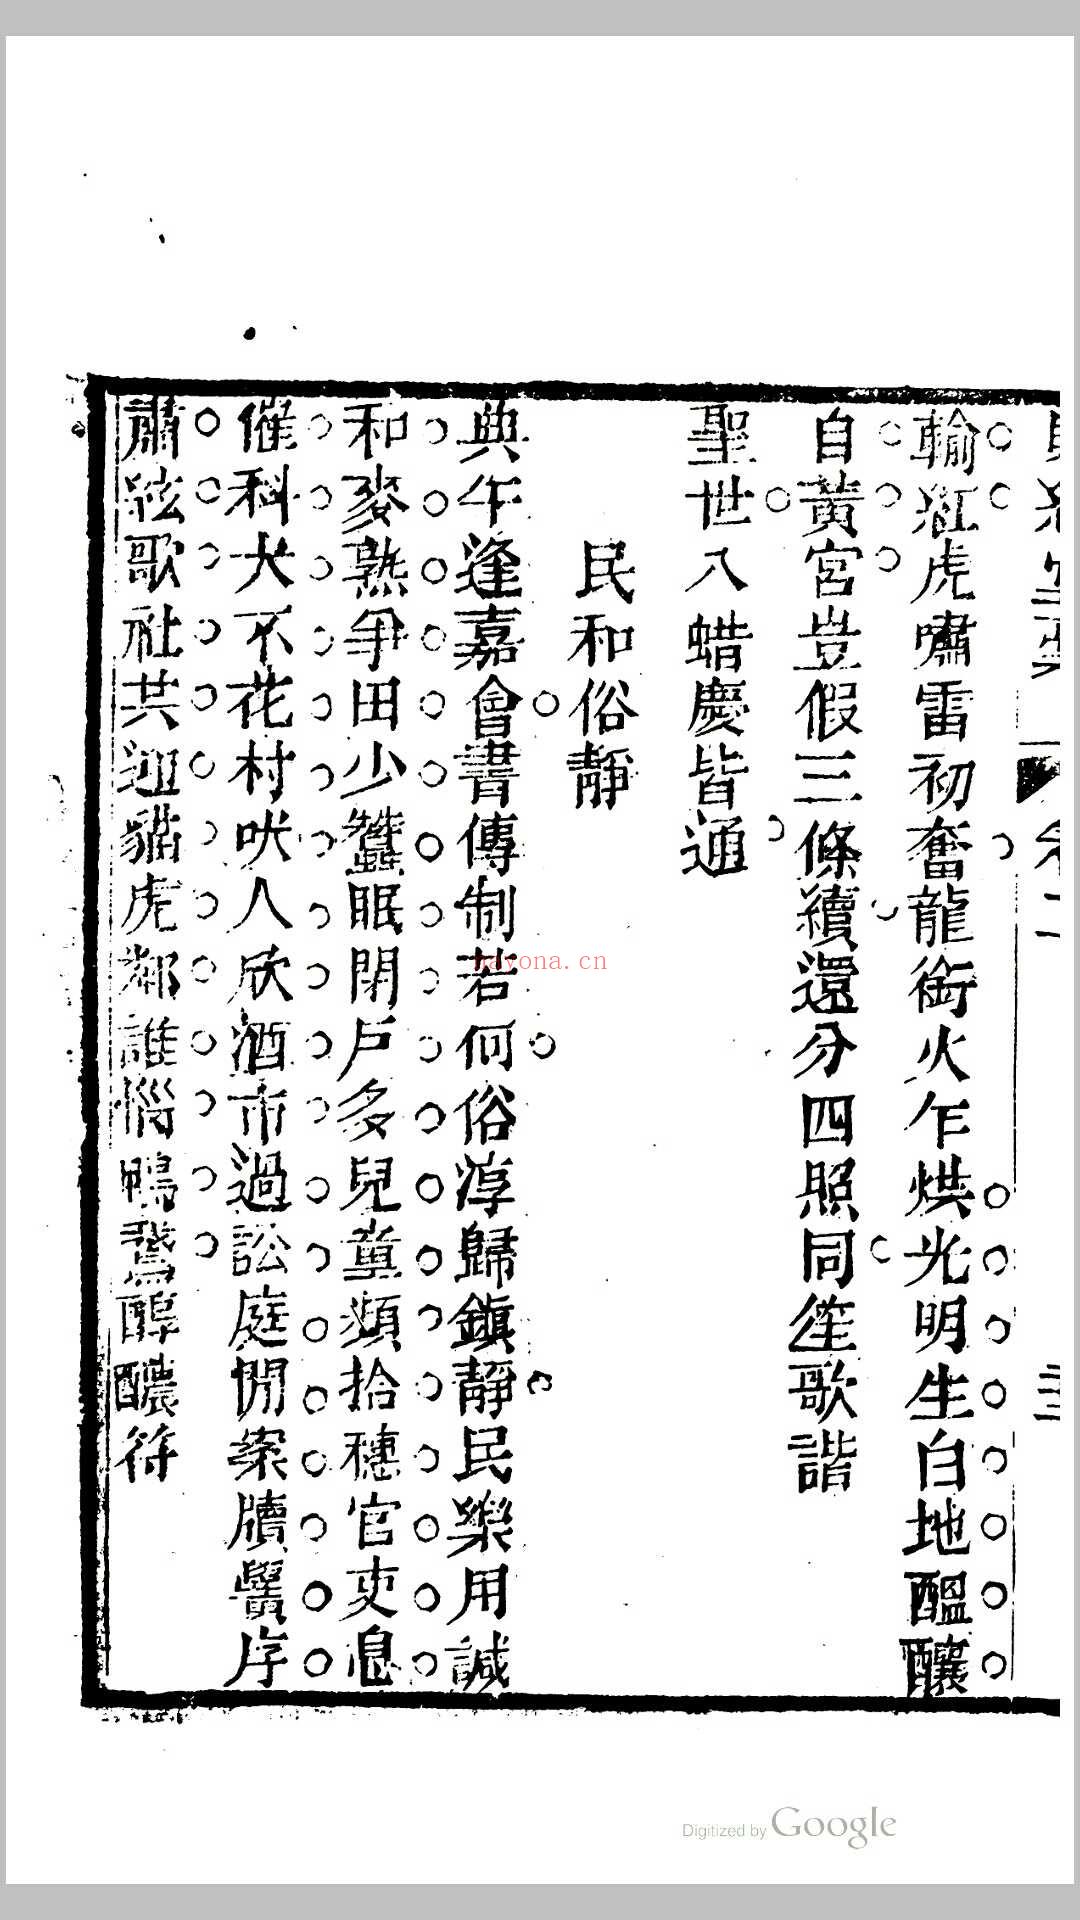 卷二
輸紅虎嘯雷初奮龍銜火乍烘光明生白地醞釀
自黃宮豈假三條續還分四照同笙歌諧
聖世八蜡慶皆通
民和俗靜
典午逢嘉會書傳制若何俗淳歸鎮靜民樂用諴
和麥熟爭田少蠶眠閉戶多兒童頻拾穗官吏息
催科犬不花村吠人欣酒市過訟庭閒案牘黌序
肅絃歌社共迎貓虎鄰誰惱鴨鵞醇醲符
nayona.cn
Digitized by Google